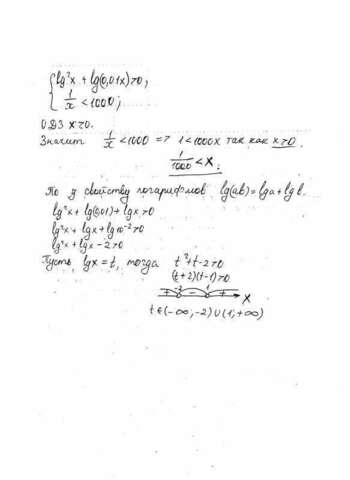 lg²x + lg(0,01x)>0,
1/x < 1000;
ОДЗ x>0.
Значит 1/x <1000 => 1<1000x так как x>0.
1/1000 < x.
По свойству логарифмов lg(ab)=lga+lgb.
lg²x + lg(0,01)+ lgx>0
lg²x + lgx + lg10⁻²>0
lg²x + lgx - 2>0
Пусть lgx = t, тогда t²+t-2>0
(t+2)(t-1)>0
+ -2 - 1 + x
t∈(-∞;-2)∪(1;+∞)